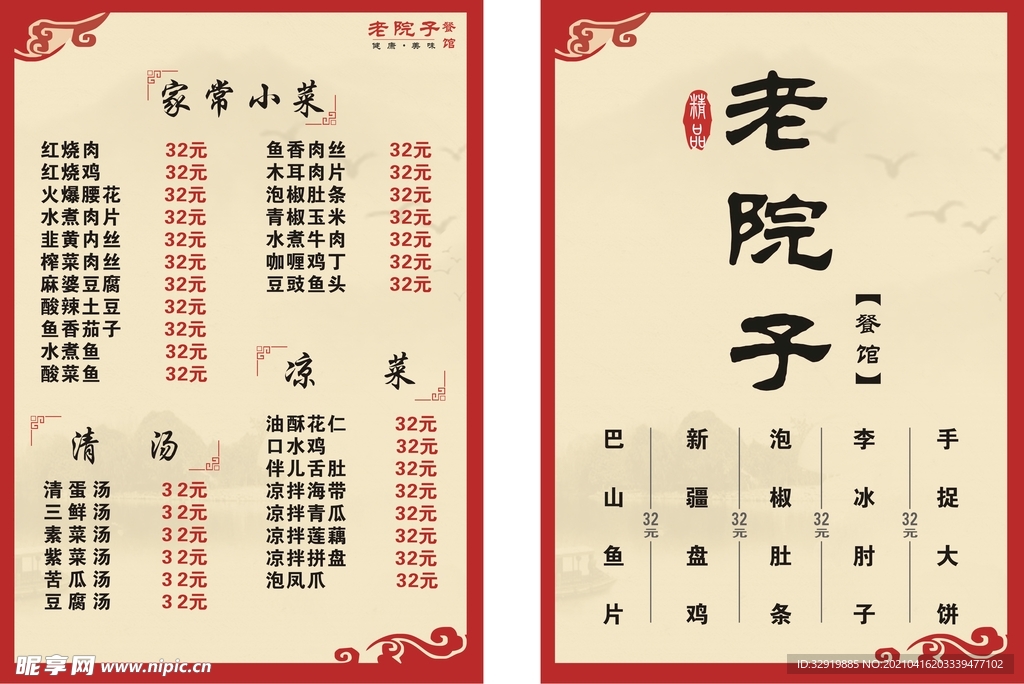 老院子餐馆
健康·美味
家常小菜
红烧肉 32元
红烧鸡 32元
火爆腰花 32元
水煮肉片 32元
韭黄内丝 32元
榨菜肉丝 32元
麻婆豆腐 32元
酸辣土豆 32元
鱼香茄子 32元
水煮鱼 32元
酸菜鱼 32元
鱼香肉丝 32元
木耳肉片 32元
泡椒肚条 32元
青椒玉米 32元
水煮牛肉 32元
咖喱鸡丁 32元
豆豉鱼头 32元
清汤
清蛋汤 32元
三鲜汤 32元
素菜汤 32元
紫菜汤 32元
苦瓜汤 32元
豆腐汤 32元
凉菜
油酥花仁 32元
口水鸡 32元
伴儿舌肚 32元
凉拌海带 32元
凉拌青瓜 32元
凉拌莲藕 32元
凉拌拼盘 32元
泡凤爪 32元
精品
老院子
【餐馆】
巴山鱼片
32元
新疆盘鸡
32元
泡椒肚条
32元
李冰肘子
32元
手捉大饼
昵享网 www.nipic.cn
ID:32919885 NO:20210416203339477102